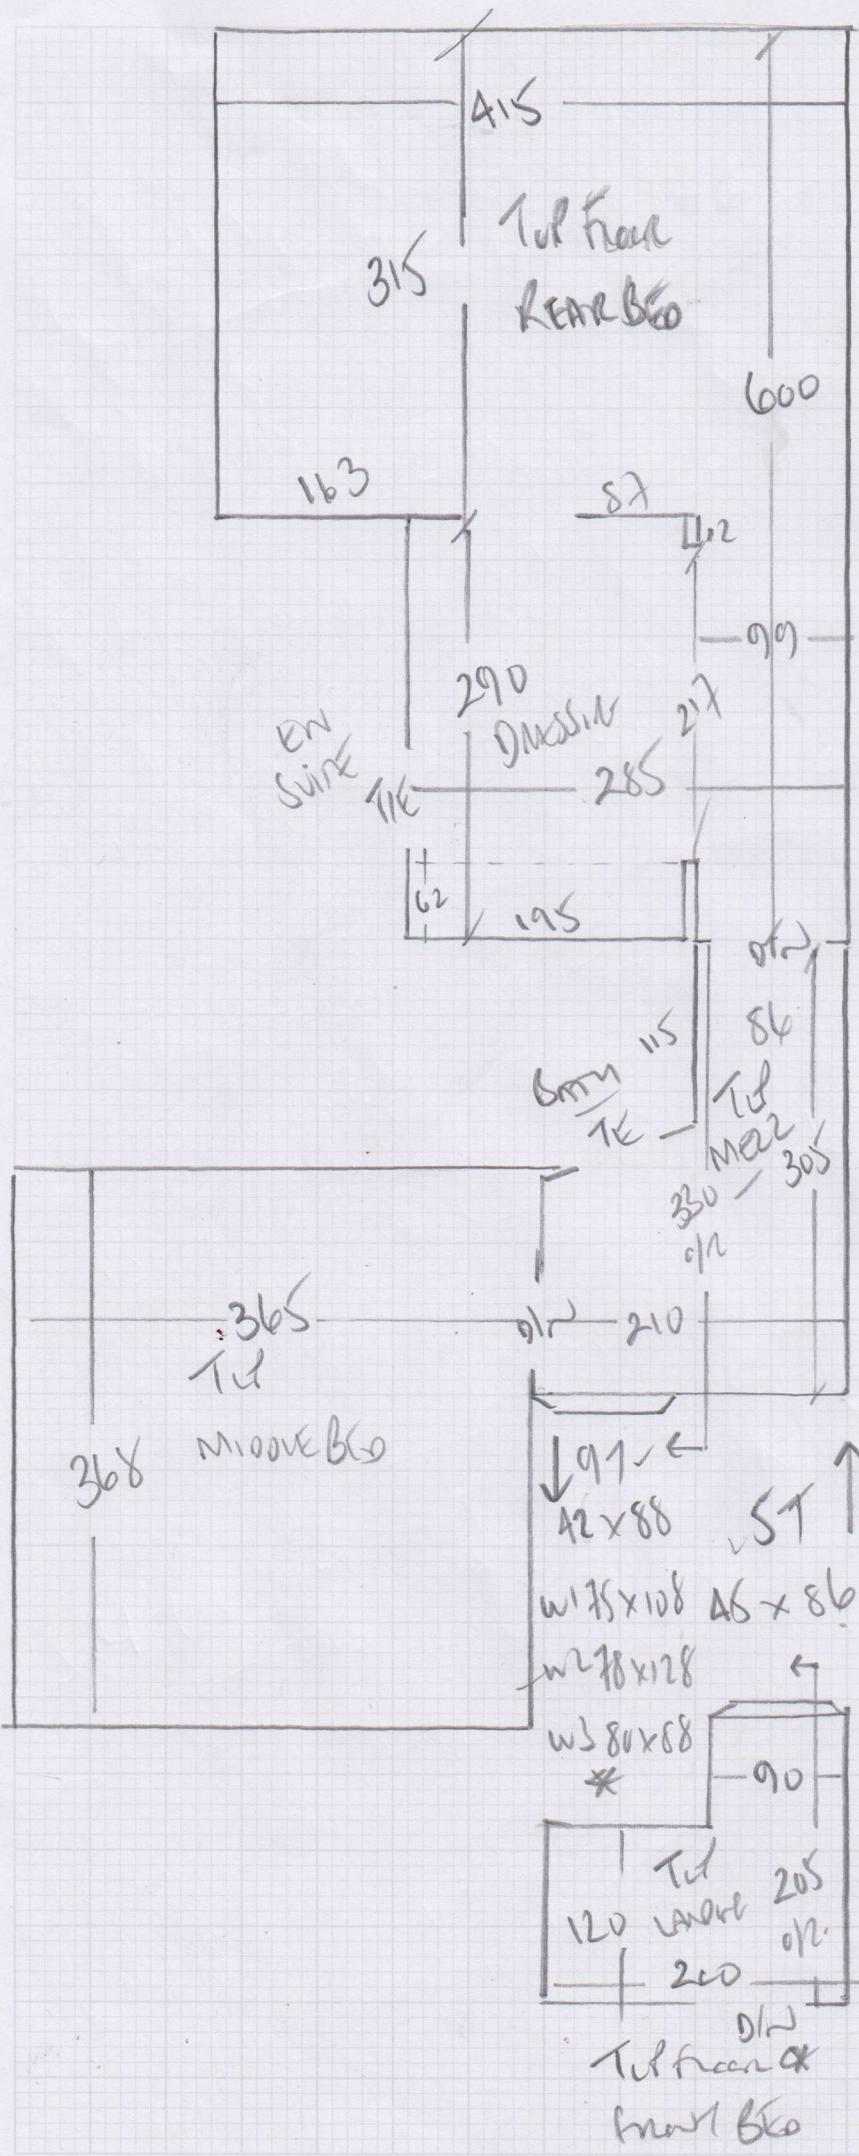 415
TOP FLOOR
REAR BED
315
600
163
87
12
99
290
DRESSIN
217
EN
SUITE
T/E
285
62
195
D/W
86
115
BATH
T/E
TOP
MEZZ
305
330
O/R
365
D/W
210
TOP
MIDDLE BED
368
↓ 91 ←
42 x 88
5T ↑
W1 75 x 108
45 x 86
W2 78 x 128
←
W3 80 x 88
*
90
TOP
LANDING
205
O/R
120
200
D/W
TOP FLOOR *
FRONT BED